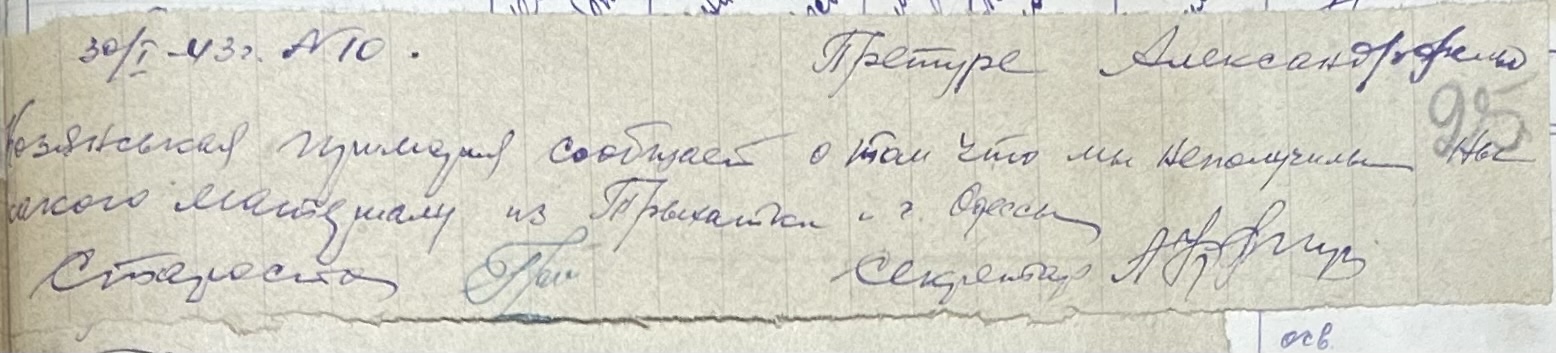 30/I-43г. №10.
Претуре Александрфельд
95
Козянськая примария сообщает о том что мы неполучили ни
какого материалу из Трихатки и г. Одессы
Староста
Секретар
осв.